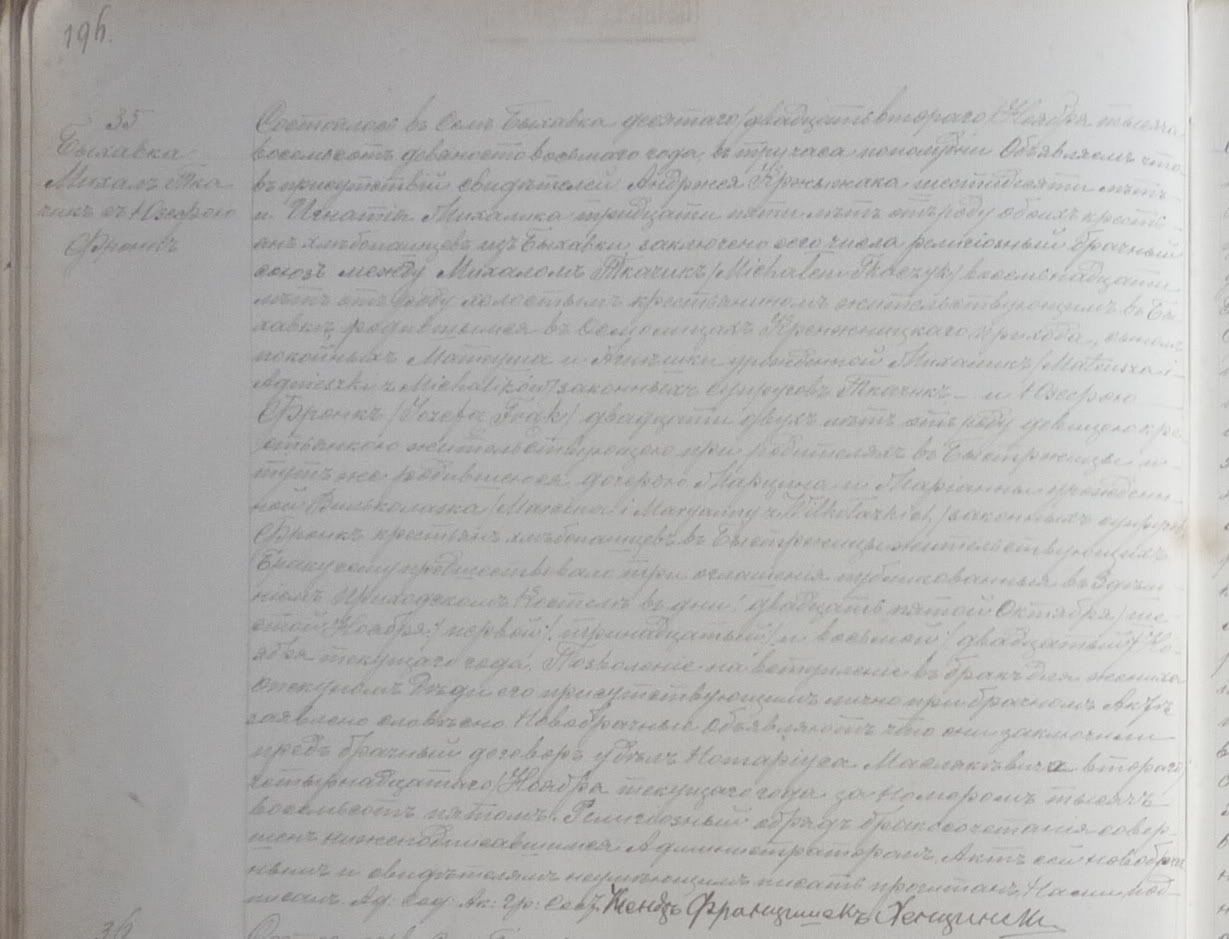 196.
35
Быхавка
Михалъ Тка
чикъ съ Юзефою
Фронкъ
Состоялось въ Селѣ Быхавка десятаго /двадцать втораго/ Ноября тысяча
восемьсотъ девяносто восьмаго года, въ три часа пополудни Объявляемъ что
въ присутствіи свидѣтелей Андржея шестидесяти лѣтъ
и Игнатія Михалика тридцати пяти лѣтъ отъ роду обоихъ кресть
янъ хлѣбопашцевъ изъ Быхавки заключено сего числа религіозный брачный
союзъ между Михаломъ Ткачикъ /Michałem Tkaczyk/ восемнадцати
лѣтъ отъ роду холостымъ крестьяниномъ жительствующимъ въ Бы
хавкѣ, родившимся въ Осмолицахъ Кренжницкаго прихода, сыномъ
покойныхъ Матеуша и Агнѣшки урожденной Михаликъ /Mateusza i
Agnieszki z Michalików/ законныхъ супруговъ Ткачикъ – и Юзефою
Фронкъ /Józefą Frąk/ двадцати двухъ лѣтъ отъ роду дѣвицею кре
стьянкою жительствующею при родителяхъ въ Быстржеицы и
тутъ же родившеюся дочерью Марцина и Маріанны урожден
ной /Marcina i Maryanny z / законныхъ супруговъ
Фронкъ крестьянъ хлѣбопашцевъ въ Быстржеицы жительствующихъ
Браку сему предшествовало три оглашенія публикованныя въ Здѣш
немъ Приходскомъ Костелѣ въ дни: двадцать пятой Октября /ше
стой Ноября/ первой / тринадцатый/ и восьмой / двадцатый/ Но
ября текущаго года. Позволеніе на вступленіе въ бракъ для жениха
опекуномъ Дѣди его присутствующимъ лично при брачномъ Актѣ
заявлено словѣсно Новобрачные объявляютъ что они заключили
предъ брачный договоръ у Нотаріуса втораго/
четырнадцатаго/ Ноября текущаго года за Номеромъ тысяча
восемьсотъ пятомъ. Религіозный обрядъ бракосочетанія совер
шенъ нижеподписавшимся Администраторомъ. Актъ сей новобрач
нымъ и свидѣтелямъ неумѣющимъ писать прочитанъ, Нами под
писанъ. Ад. Сод. Ак: Гр: Сост. Ксендзъ Францишекъ Хенцински
36